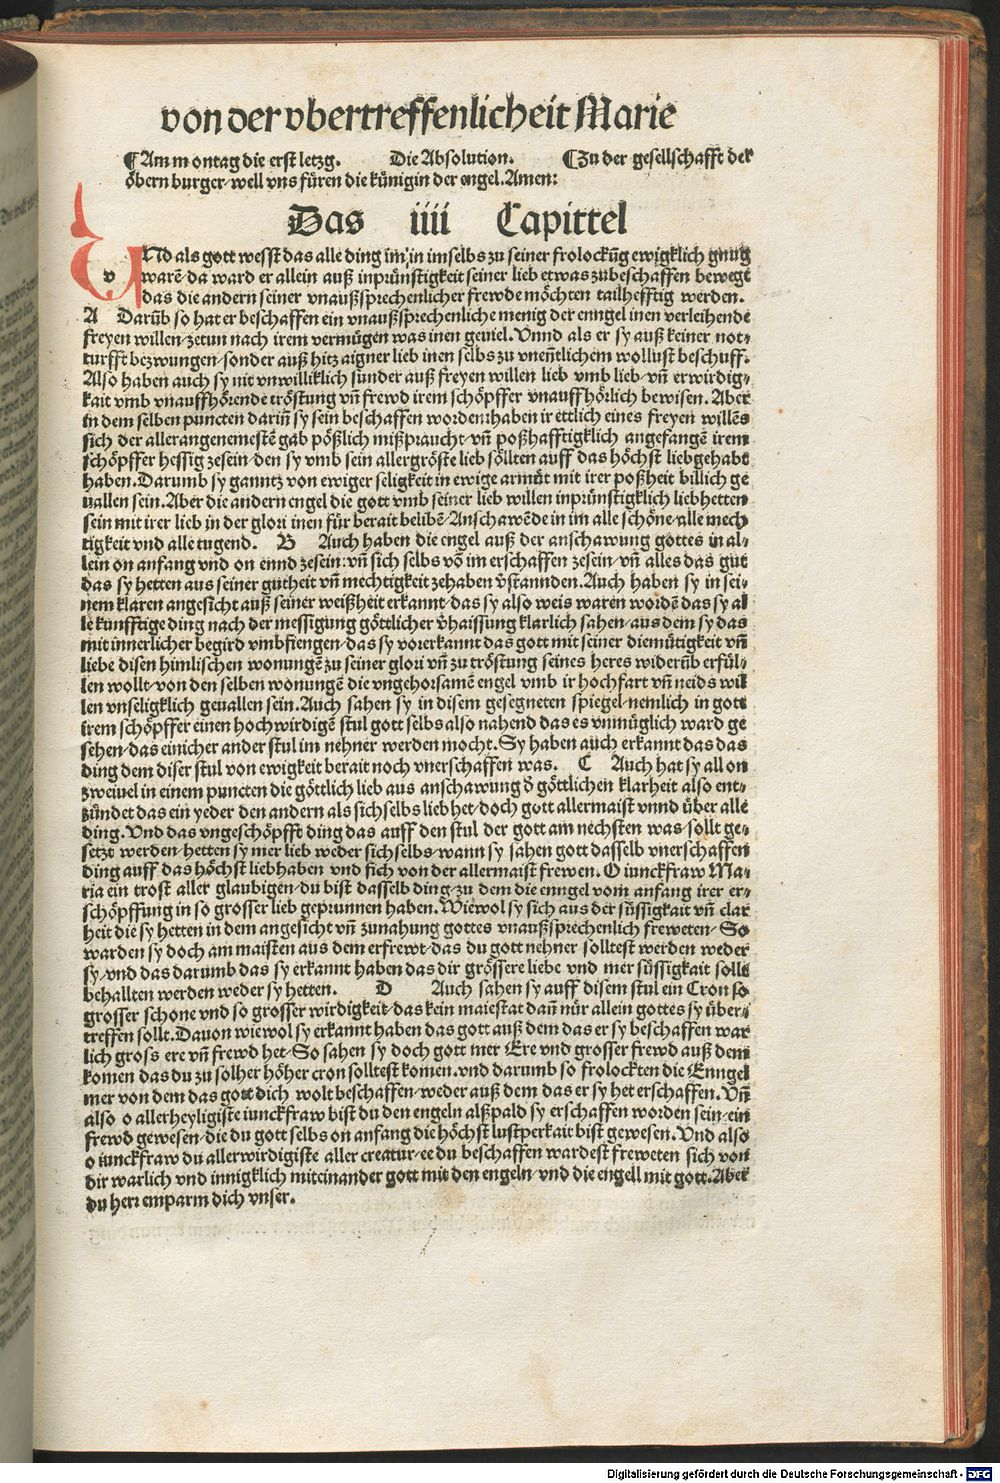 von der vbertreffenlicheit Marie
¶ Am montag die erst letzg. Die Absolution. ¶ Zu der gesellschafft der
öbern burger/well vns füren die künigin der engel.Amen:
Das iiii Capittel
VNd als gott wesst das alle ding im/in imselbs zu seiner frolockūg ewigklich gnug
v warē/da ward er allein auß inprünstigkeit seiner lieb etwas zubeschaffen bewegt
das die andern seiner vnaußsprechenlicher frewde möchten tailhefftig werden.
A Darūb so hat er beschaffen ein vnaußsprechenliche menig der enngel inen verleihende
freyen willen/zetun nach irem vermügen was inen geuiel.Vnnd als er sy auß keiner not⸗
turfft bezwungen/sonder auß hitz aigner lieb inen selbs zu vnentlichem wollust beschuff.
Also haben auch sy nit vnwilliklich sunder auß freyen willen lieb vmb lieb/vn̄ erwirdig⸗
kait vmb vnauffhörende tröstung vn̄ frewd irem schöpffer vnauffhörlich bewisen.Aber
in dem selben puncten darin̄ sy sein beschaffen worden:haben ir ettlich eines freyen willēs
sich der allerangenemestē gab pößlich mißpraucht/vn̄ poßhafftigklich angefangē irem
schöpffer hessig zesein/den sy vmb sein allergröste lieb söllten auff das höchst liebgehabt
haben.Darumb sy ganntz von ewiger seligkeit in ewige armůt mit irer poßheit billich ge
uallen sein.Aber die andern engel die gott vmb seiner lieb willen inprünstigklich liebhetten
sein mit irer lieb in der glori inen für berait belibē/Anschawēde in im alle schöne/alle mech
tigkeit vnd alle tugend. B Auch haben die engel auß der anschawung gottes in al⸗
lein on anfang vnd on ennd zesein:vn̄ sich selbs vō im erschaffen zesein/vn̄ alles das gut
das sy hetten aus seiner gutheit vn̄ mechtigkeit zehaben v̄stannden.Auch haben sy in sei⸗
nem klaren angesicht auß seiner weißheit erkannt/das sy also weis waren wordē das sy al
le künfftige ding nach der messigung göttlicher v̄haissung klarlich sahen/aus dem sy das
mit innerlicher begird vmbfiengen/das sy vorerkannt das gott mit seiner diemütigkeit vn̄
liebe disen himlischen wonungē zu seiner glori vn̄ zu tröstung seines heres widerūb erfül⸗
len wollt/von den selben wonungē die vngehorsamē engel vmb ir hochfart vn̄ neids wil
len vnseligklich geuallen sein.Auch sahen sy in disem gesegneten spiegel/nemlich in gott
irem schöpffer einen hochwirdigē stul gott selbs also nahend das es vnmüglich ward ge
sehen/das einicher ander stul im nehner werden mocht.Sy haben auch erkannt das das
ding dem diser stul von ewigkeit berait noch vnerschaffen was. C Auch hat sy all on
zweiuel in einem puncten die göttlich lieb aus anschawung d̄ göttlichen klarheit also ent⸗
zündet das ein yeder den andern als sichselbs liebhet/doch gott allermaist vnnd über alle
ding.Vnd das vngeschöpfft ding das auff den stul der gott am nechsten was/sollt ge⸗
setzt werden/hetten sy mer lieb weder sichselbs/wann sy sahen gott dasselb vnerschaffen
ding auff das höchst liebhaben vnd sich von der allermaist frewen.O iunckfraw Ma⸗
ria ein trost aller glaubigen/du bist dasselb ding/zu dem die enngel vom anfang irer er⸗
schöpffung in so grosser lieb geprunnen haben.Wiewol sy sich aus der süssigkait vn̄ clar
heit die sy hetten in dem angesicht vn̄ zunahung gottes vnaußsprechenlich freweten/So
warden sy doch am maisten aus dem erfrewt/das du gott nehner solltest werden weder
sy/vnd das darumb das sy erkannt haben das dir grössere liebe vnd mer süssigkait sollt
behallten werden weder sy hetten. D Auch sahen sy auff disem stul ein Cron so
grosser schone vnd so grosser wirdigkeit/das kein maiestat dan̄ nür allein gottes sy über⸗
treffen sollt.Dauon wiewol sy erkannt haben das gott auß dem das er sy beschaffen war
lich gross ere vn̄ frewd het/So sahen sy doch gott mer Ere vnd grosser frewd auß dem
komen das du zu solher höher cron solltest komen.vnd darumb so frolockten die Enngel
mer von dem das gott dich wolt beschaffen/weder auß dem das er sy het erschaffen.Vn̄
also o allerheyligiste iunckfraw bist du den engeln alßpald sy erschaffen worden sein/ein
frewd gewesen/die du gott selbs on anfang die höchst lustperkait bist gewesen.Vnd also
o iunckfraw du allerwirdigiste aller creatur/ee du beschaffen wardest freweten sich von
dir warlich vnd innigklich miteinander gott mit den engeln/vnd die engell mit gott.Aber
du herr emparm dich vnser.
Digitalisierung gefördert durch die Deutsche Forschungsgemeinschaft - DFG